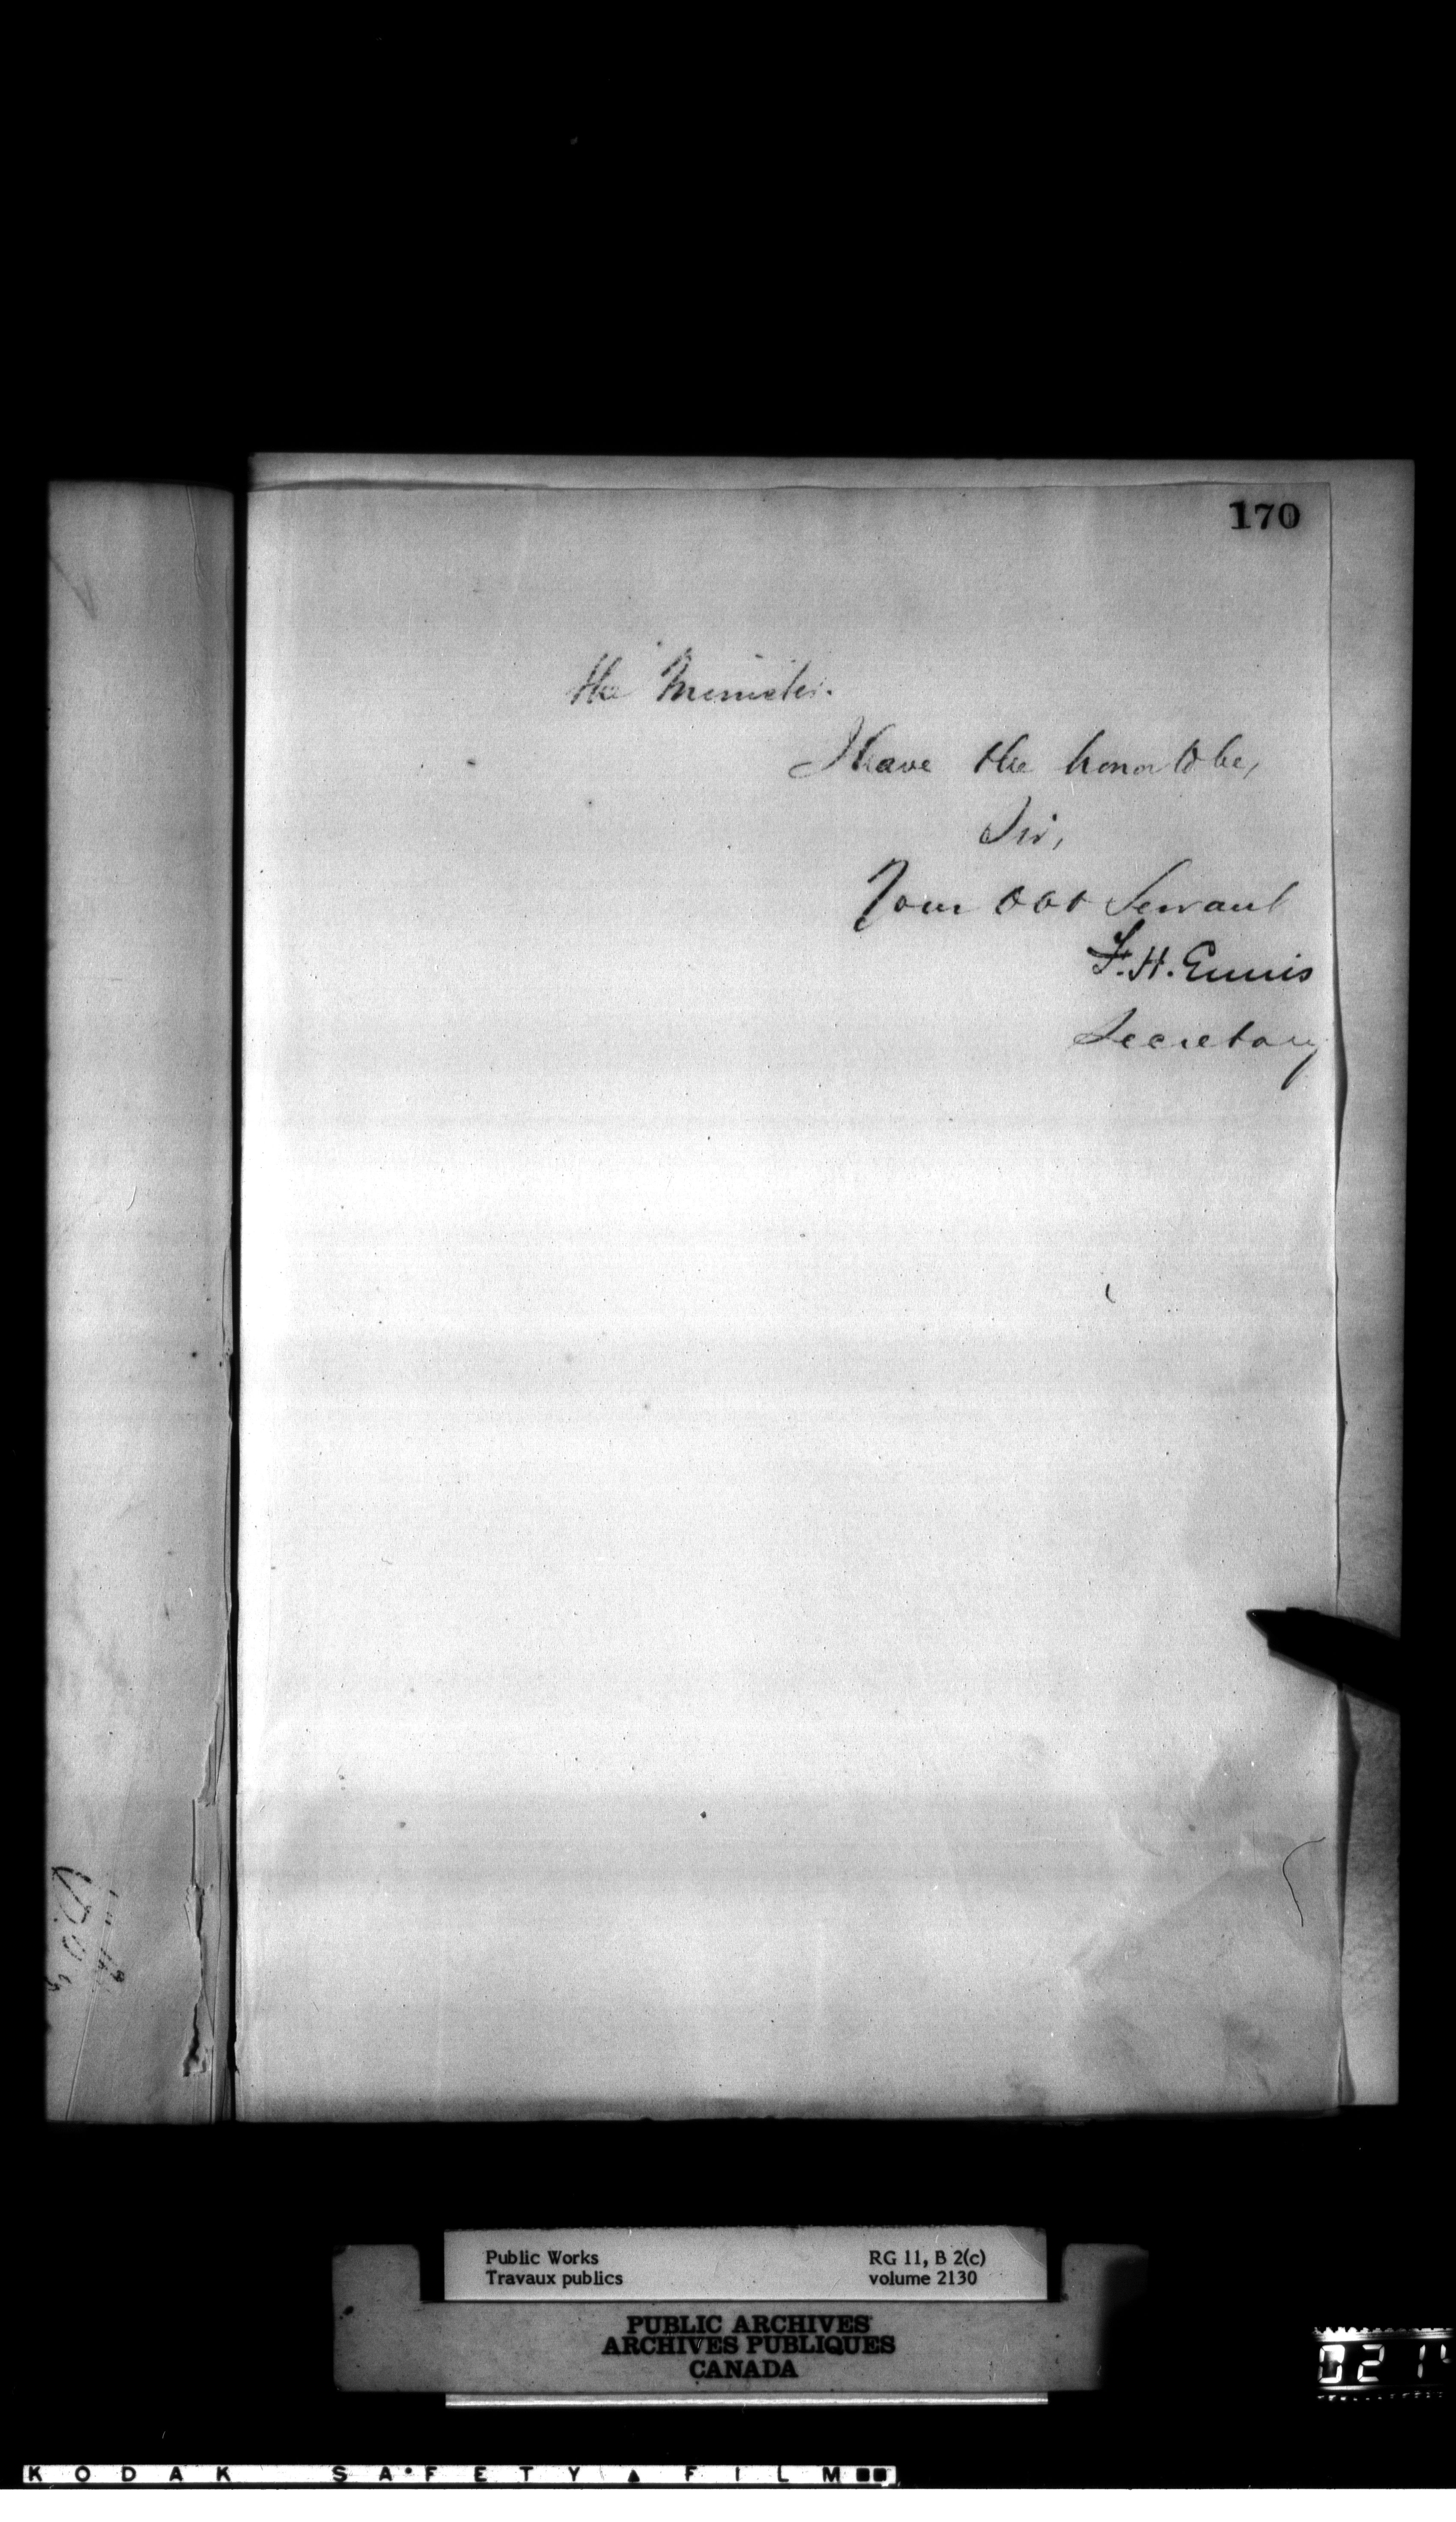 170
the Minister.
I have the honor to be,
Sir,
Your obt Servant
F. H. Ennis
Secretary
Public Works
Travaux publics
RG 11, B 2(c)
volume 2130
PUBLIC ARCHIVES
ARCHIVES PUBLIQUES
CANADA
KODAK SAFETY FILM